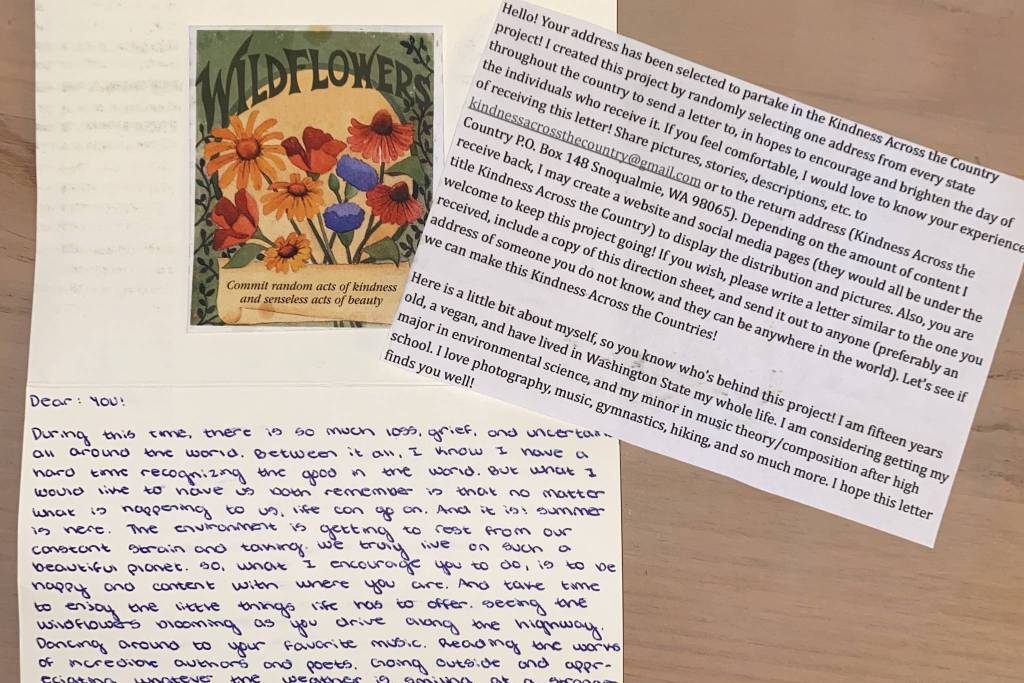 WILDFLOWERS
Commit random acts of kindness
and senseless acts of beauty
Hello! Your address has been selected to partake in the Kindness Across the Country
project! I created this project by randomly selecting one address from every state
throughout the country to send a letter to, in hopes to encourage and brighten the day of
the individuals who receive it. If you feel comfortable, I would love to know your experience
of receiving this letter! Share pictures, stories, descriptions, etc. to
kindnessacrossthecountry@gmail.com or to the return address (Kindness Across the
Country P.O. Box 148 Snoqualmie, WA 98065). Depending on the amount of content I
receive back, I may create a website and social media pages (they would all be under the
title Kindness Across the Country) to display the distribution and pictures. Also, you are
welcome to keep this project going! If you wish, please write a letter similar to the one you
received, include a copy of this direction sheet, and send it out to anyone (preferably an
address of someone you do not know, and they can be anywhere in the world). Let's see if
we can make this Kindness Across the Countries!
Here is a little bit about myself, so you know who's behind this project! I am fifteen years
old, a vegan, and have lived in Washington State my whole life. I am considering getting my
major in environmental science, and my minor in music theory/composition after high
school. I love photography, music, gymnastics, hiking, and so much more. I hope this letter
finds you well!
Dear: You!
During this time, there is so much loss, grief, and uncertain
all around the world. Between it all, I know I have a
hard time recognizing the good in the world. But what I
would like to have us both remember is that no matter
what is happening to us, life can go on. And it is! Summer
is here. The environment is getting to rest from our
constant strain and taking. We truly live on such a
beautiful planet. So, what I encourage you to do, is to be
happy and content with where you are. And take time
to enjoy the little things life has to offer. Seeing the
wildflowers blooming as you drive along the highway.
Dancing around to your favorite music. Reading the works
of incredible authors and poets. Going outside and appr-
eciating whatever the weather is. Smiling at a